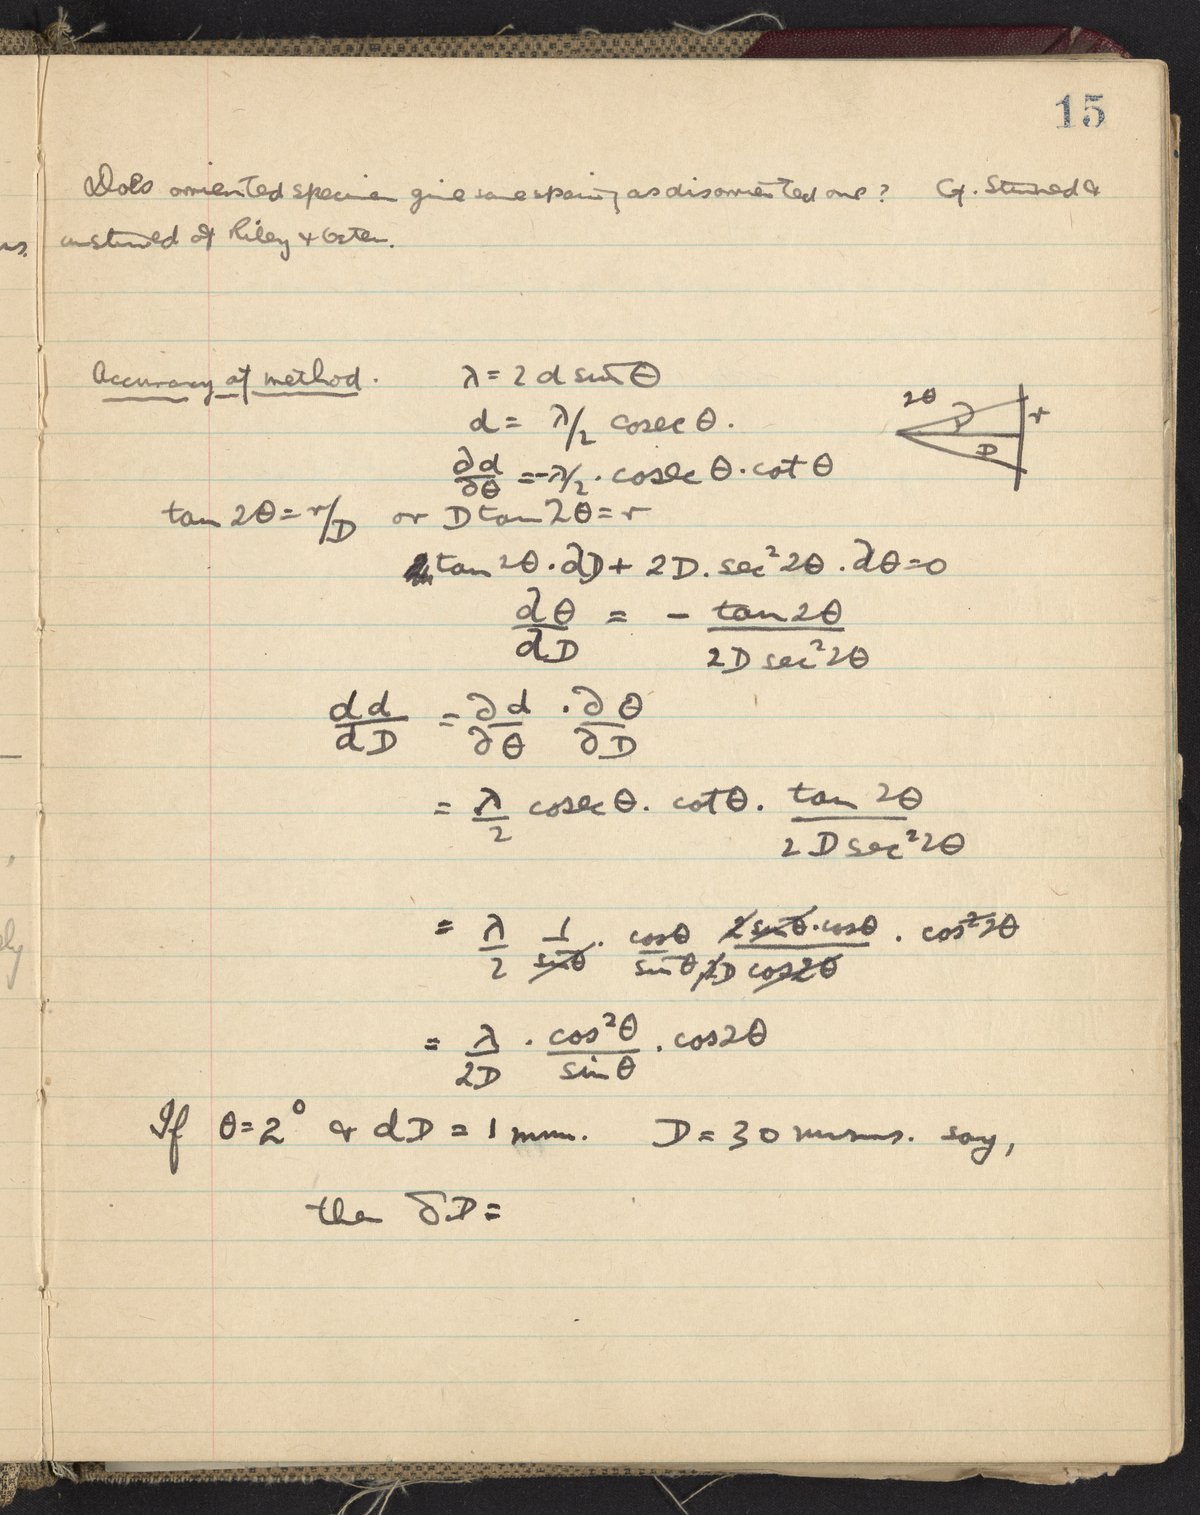 15
Does orriented specimen give same spacing as disorriented one? Cf. Strained &
unstrained of Riley & Oster.
Accuracy of method. λ = 2d sin θ
d = λ/2 cosec θ.
∂d/∂θ = -λ/2 . cosec θ . cot θ
2θ
r
D
tan 2θ = r/D or D tan 2θ = r
tan 2θ . ∂D + 2D . sec² 2θ . ∂θ = 0
dθ/dD = - tan 2θ / 2D sec² 2θ
dd/dD = ∂d/∂θ . ∂θ/∂D
= λ/2 cosec θ . cot θ . tan 2θ / 2D sec² 2θ
= λ/2 1/sin θ . cos θ/sin θ . 2 sin θ . cos θ / 2D cos 2θ . cos² 2θ
= λ/2D . cos² θ/sin θ . cos 2θ
If θ = 2° & dD = 1 mm. D = 30 mms. say,
then δD =